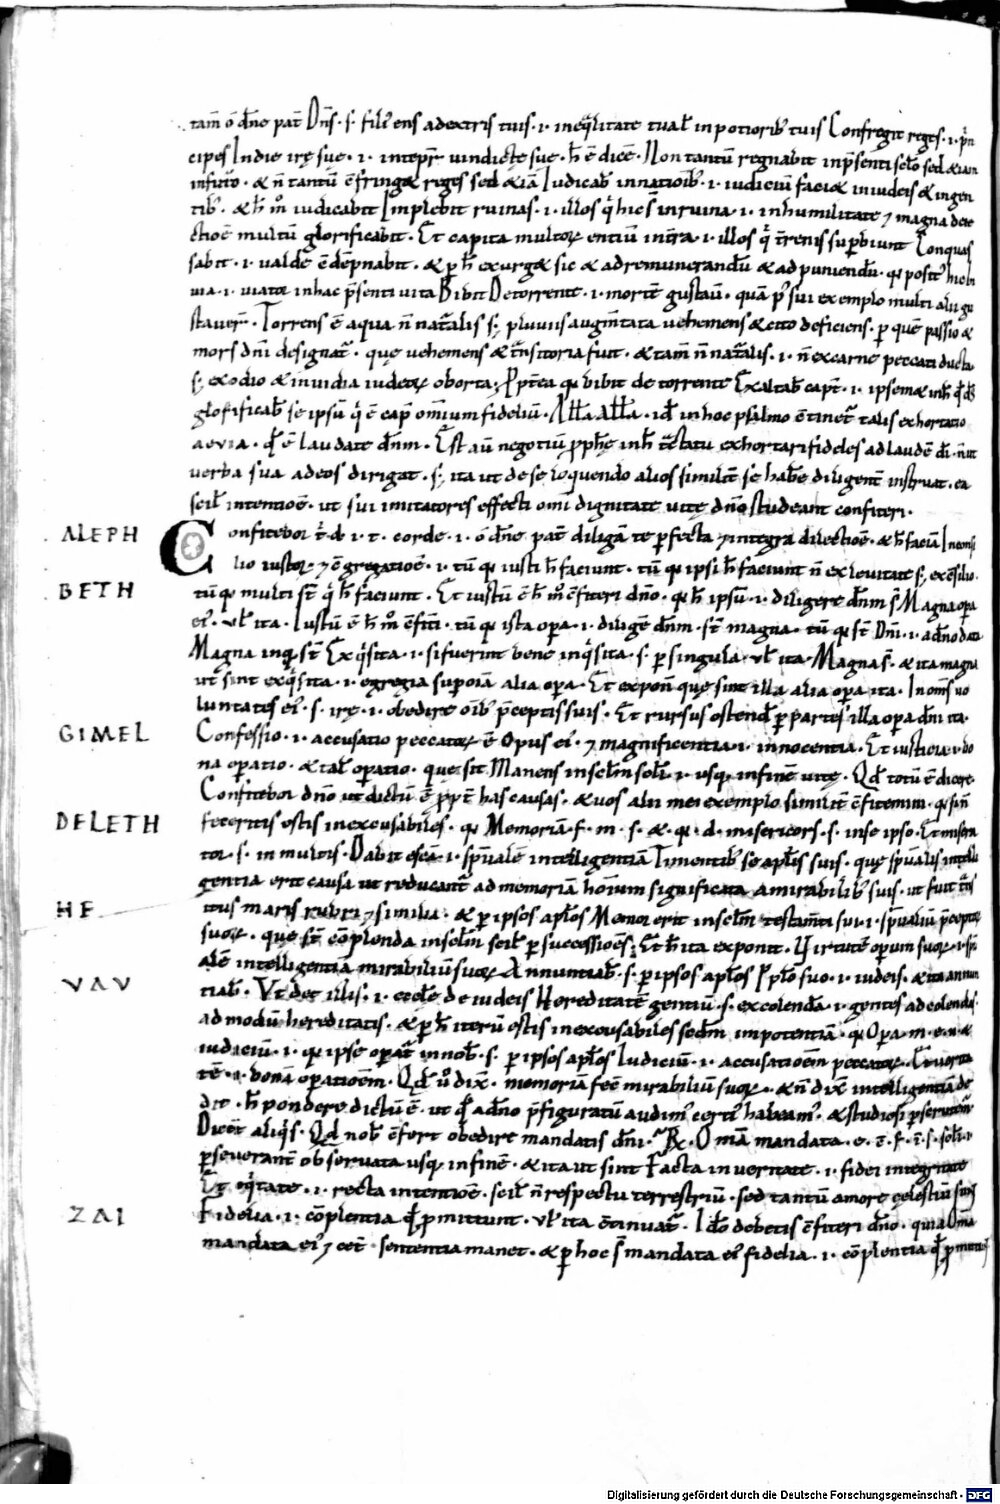 tam̄ ō dn̄e pat̄ Dn̄s · s · fili᷒ ens adextris tuis · i · ineq̄litate tua ł inpotiorib᷒ tuis Confregit reges · i · p̄n
cipes Indie irę suę · i · intēpr̄ uindictę suę · h̄ ē dicē · Non tantū regnabit inp̄senti sc̄lo sed & iam
infuturo · & n̄ tantū c̄fringet reges sed & iā Iudicab̄ innatioīb᷒ · i · iudiciū faci& iniudeis & ingen
tib᷒ · & h̄ m̊ iudicabit Implebit ruinas · i · illos q̄ hic s̄ inruina · i · inhumilitate ⁊ magna deie
ctioē multū glorificabit · Et capita multoꝝ entiū int̄ra · i · illos q̄ t̄renis sup̄biunt Conquas
sabit · i · valde c̄dēpnabit · & p̄ h̄ exurget sic & adremunerandū & adpuniendū · q̄ posit᷒ hic In
uia · i · uiator inhac p̄senti vita Bibit Detorrente · i · mortē gustauit · quā p᷒ sui exemplo multi alii gu
stauer̄ · Torrens ē aqua n̄ nat̄alis s; pluuiis augm̄tata uehemens & cito deficiens · p quē passio &
mors dn̄i designat̄ · quę uehemens & t̄nsitoria fuit · & tam̄ n̄ nat̄alis · i · n̄ excarne peccati ducta
s; exodio & inuidia iudeoꝝ oborta; Ppt̄ea q̄ bibit de torrente Exaltab̄ cap᷒t · i · ipsemet in h̄ qd̄ d̄s
glorificab̄ se ipsū q̄ ē cap᷒ omnium fideliū · All̄a All̄a · id̄ inhoc psalmo c̄tinet̄ talis exhortatio
aeuia · qd̄ ē laudate dn̄m · Est aū negotiū pph̄ę inh̄ t̄ctatu exhortari fideles ad laudē dī · n̄ ut
verba sua adeos dirigat · s; ita ut de se loquendo alios similit̄ se habe diligent̄ instruat · ea
scil̄ intentioē · ut sui imitatores effecti omī dignitate uitę dn̄o studeant confiteri ·
ALEPH Confitebor t᷒ d̄ · i · t · corde · i · ō dn̄e pat̄ diligā te pfecta ⁊ integra dilectioē · & h̄ faciā Inconsi
lio iustoꝝ ⁊ c̄gregatioē · i · tū q̄ iusti h̄ faciunt · tū q̄ ipsi h̄ faciunt n̄ exleuitate s; exc̄silio ·
BETH tū q̄ multi st̄ q̄ h̄ faciunt · Et iustū ē h̄ m̊ c̄fiteri dn̄o · q̄ h̄ ipsū · i · diligere dn̄m st̄ Magna opa
ei᷒ · ul̄ ita · Iustū ē h̄ m̊ c̄fit̄i · tū q̄ ista opa · i · diligē dn̄m · st̄ magna · tū q̄ st̄ Dn̄i · i · adn̄o data
Magna inq̄ st̄ Exq̄sita · i · si fuerint bene inq̄sita · s · p singula · ul̄ ita · Magna s̄ · & ita magna
ut sint exq̄sita · i · egregia sup oīa alia opa · Et expon̄ quę sint illa alia opa ita · In om̄s uo
luntates ei᷒ · s · irę · i · obedire oīb᷒ p̄ceptis suis · Et rursus ostend̄ p partes illa opa dn̄i ita ·
GIMEL Confessio · i · accusatio peccatoꝝ ē Opus ei᷒ ⁊ magnificentia · i · innocentia · Et iusticia · i · bo
na opatio · & tał opatio · quę sit Manens insc̄lm sc̄li · i · usq̄ infinē uitę · Qd̄ totū ē dicere
Confitebor dn̄o ut dictū ē ppt̄ has causas · & uos alii mei exemplo similit̄ c̄fitemini · q̄ si n̄
DELETH feceritis estis inexcusabiles · q̄ Memoriā · f · m · s · & · q̄ · d · misericors · s · inse ipso · Et misera
tor · s · in multis · Dabit escā · i · sp̄ualē intelligentiā Timentib᷒ se apl̄is suis · quę sp̄ualis intelli
gentia erit causa ut reducant̄ ad memoriā hom̄um significata amirabilib᷒ suis · ut fuit t̄ns
HE itus maris rubri ⁊ similia · & p ipsos apl̄os Memor erit insc̄lm testam̄ti sui · i · sp̄ualiū p̄ceptoꝝ
suoꝝ · que st̄ cōplenda insc̄lm scil̄ p successiōes; Et h̄ ita exponit · Virtutē operum suoꝝ · i · sp̄u
alē intelligentiā mirabiliū suoꝝ Annuntiab̄ · s · p ipsos apl̄os Pplo suo · i · iudeis · & ita annun
VAV tiab̄ · Vt det illis · i · eccl̄ę de iudeis Hereditatē gentiū · s · excolendā · i · gentes ad colendas
admodū hereditatis · & p h̄ iterū estis inexcusabiles sec̄dm impotentiā · q̄ Opa · m · e · u · &
iudiciū · i · q̄ ipse opat̄ innob̄ · s · p ipsos apl̄os Iudiciū · i · accusatioēm peccatoꝝ · Et ueri
tē · i · bonā opatioēm · Qd̄ ů dix̄ · memoriā fec̄ mirabiliū suoꝝ · & n̄ dix̄ intelligentiā de
dit · h̄ pondere dictū ē · ut qd̄ adn̄o p̄figuratū audim᷒ certi᷒ habeam᷒ · & studiosi᷒ pscrutem᷒
Dicēt aliq̄s · Qd̄ nob̄ c̄fert obedire mandatis dn̄i · R̄ · Omā mandata · e · c̄ · f · ī · s · scłi · i ·
pseuerant̄ obseruata usq̄ infinē · & ita ut sint Facta in ueritate · i · fidei integritate
Et eq̄tate · i · recta intentioē · scil̄ n̄ respectu terrestriū · sed tantū amore cęlestiū sint
ZAI Fidelia · i · cōplentia qd̄ pmittunt · ul̄ ita c̄tinuat̄ · Ido debetis c̄fiteri dn̄o · quia Omā
mandata ei᷒ ⁊ cet̄ · sententia manet · & p hoc st̄ mandata ei᷒ fidelia · i · cōplentia qd̄ pmittunt
Digitalisierung gefördert durch die Deutsche Forschungsgemeinschaft - DFG